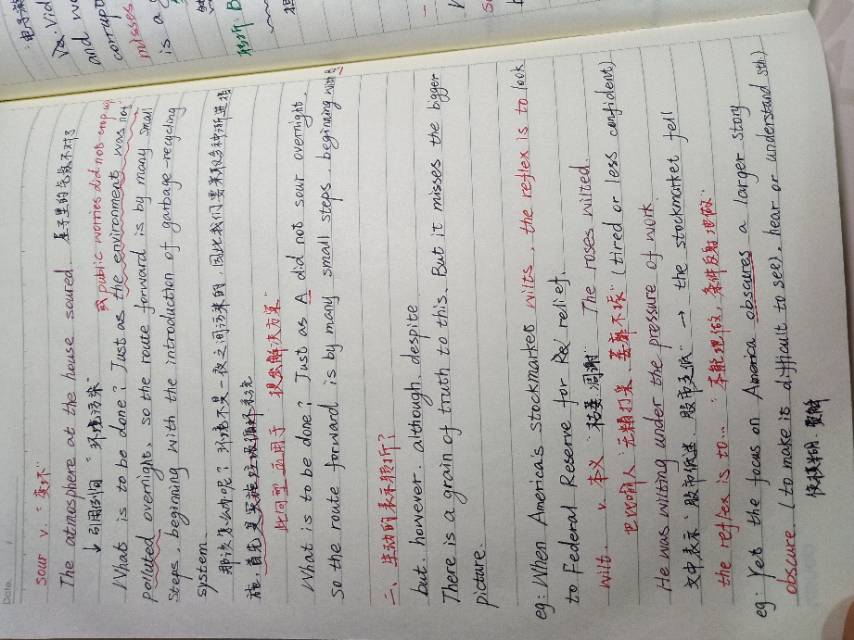 Date.
sour v. "变坏"
The atmosphere at the house soured. 屋子里的气氛不对了
↓ 引用例句 "环境污染"
或 public worries did not crop up
What is to be done? Just as the environments was not
polluted overnight, so the route forward is by many small
steps, beginning with the introduction of garbage-recycling
system.
那该怎么办呢? 环境不是一夜之间污染的, 因此我们要采取多种渐进措
施, 首先是实施垃圾循环系统
此句型应用于 "提出解决方案"
What is to be done? Just as A did not sour overnight,
so the route forward is by many small steps, beginning with B
二、生动的表示转折?
but. however. although. despite
There is a grain of truth to this. But it misses the bigger
picture.
eg: When America's stockmarket wilts, the reflex is to look
to Federal Reserve for relief.
wilt. v. 本义 "枯萎, 凋谢" The roses wilted.
"无精打采、萎靡不振" (tired or less confident)
He was wilting under the pressure of work
文中表示 "股市低迷" → the stockmarket fell
the reflex is to... "本能地做, 条件反射地做"
eg: Yet the focus on America obscures a larger story
obscure (to make is difficult to see), hear or understand sth.)
使模糊.
Da Vid
and
corrup
misses
is a
转折: B